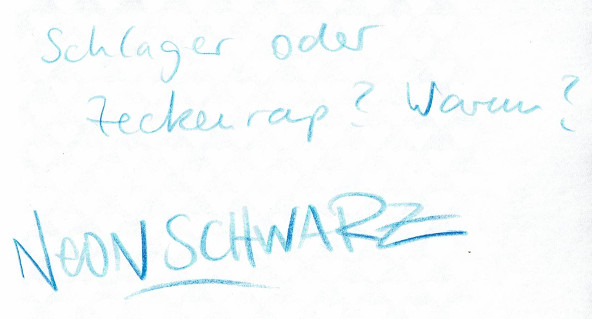 Schlager oder
Zeckenrap? Warum?
NEONSCHWARZ